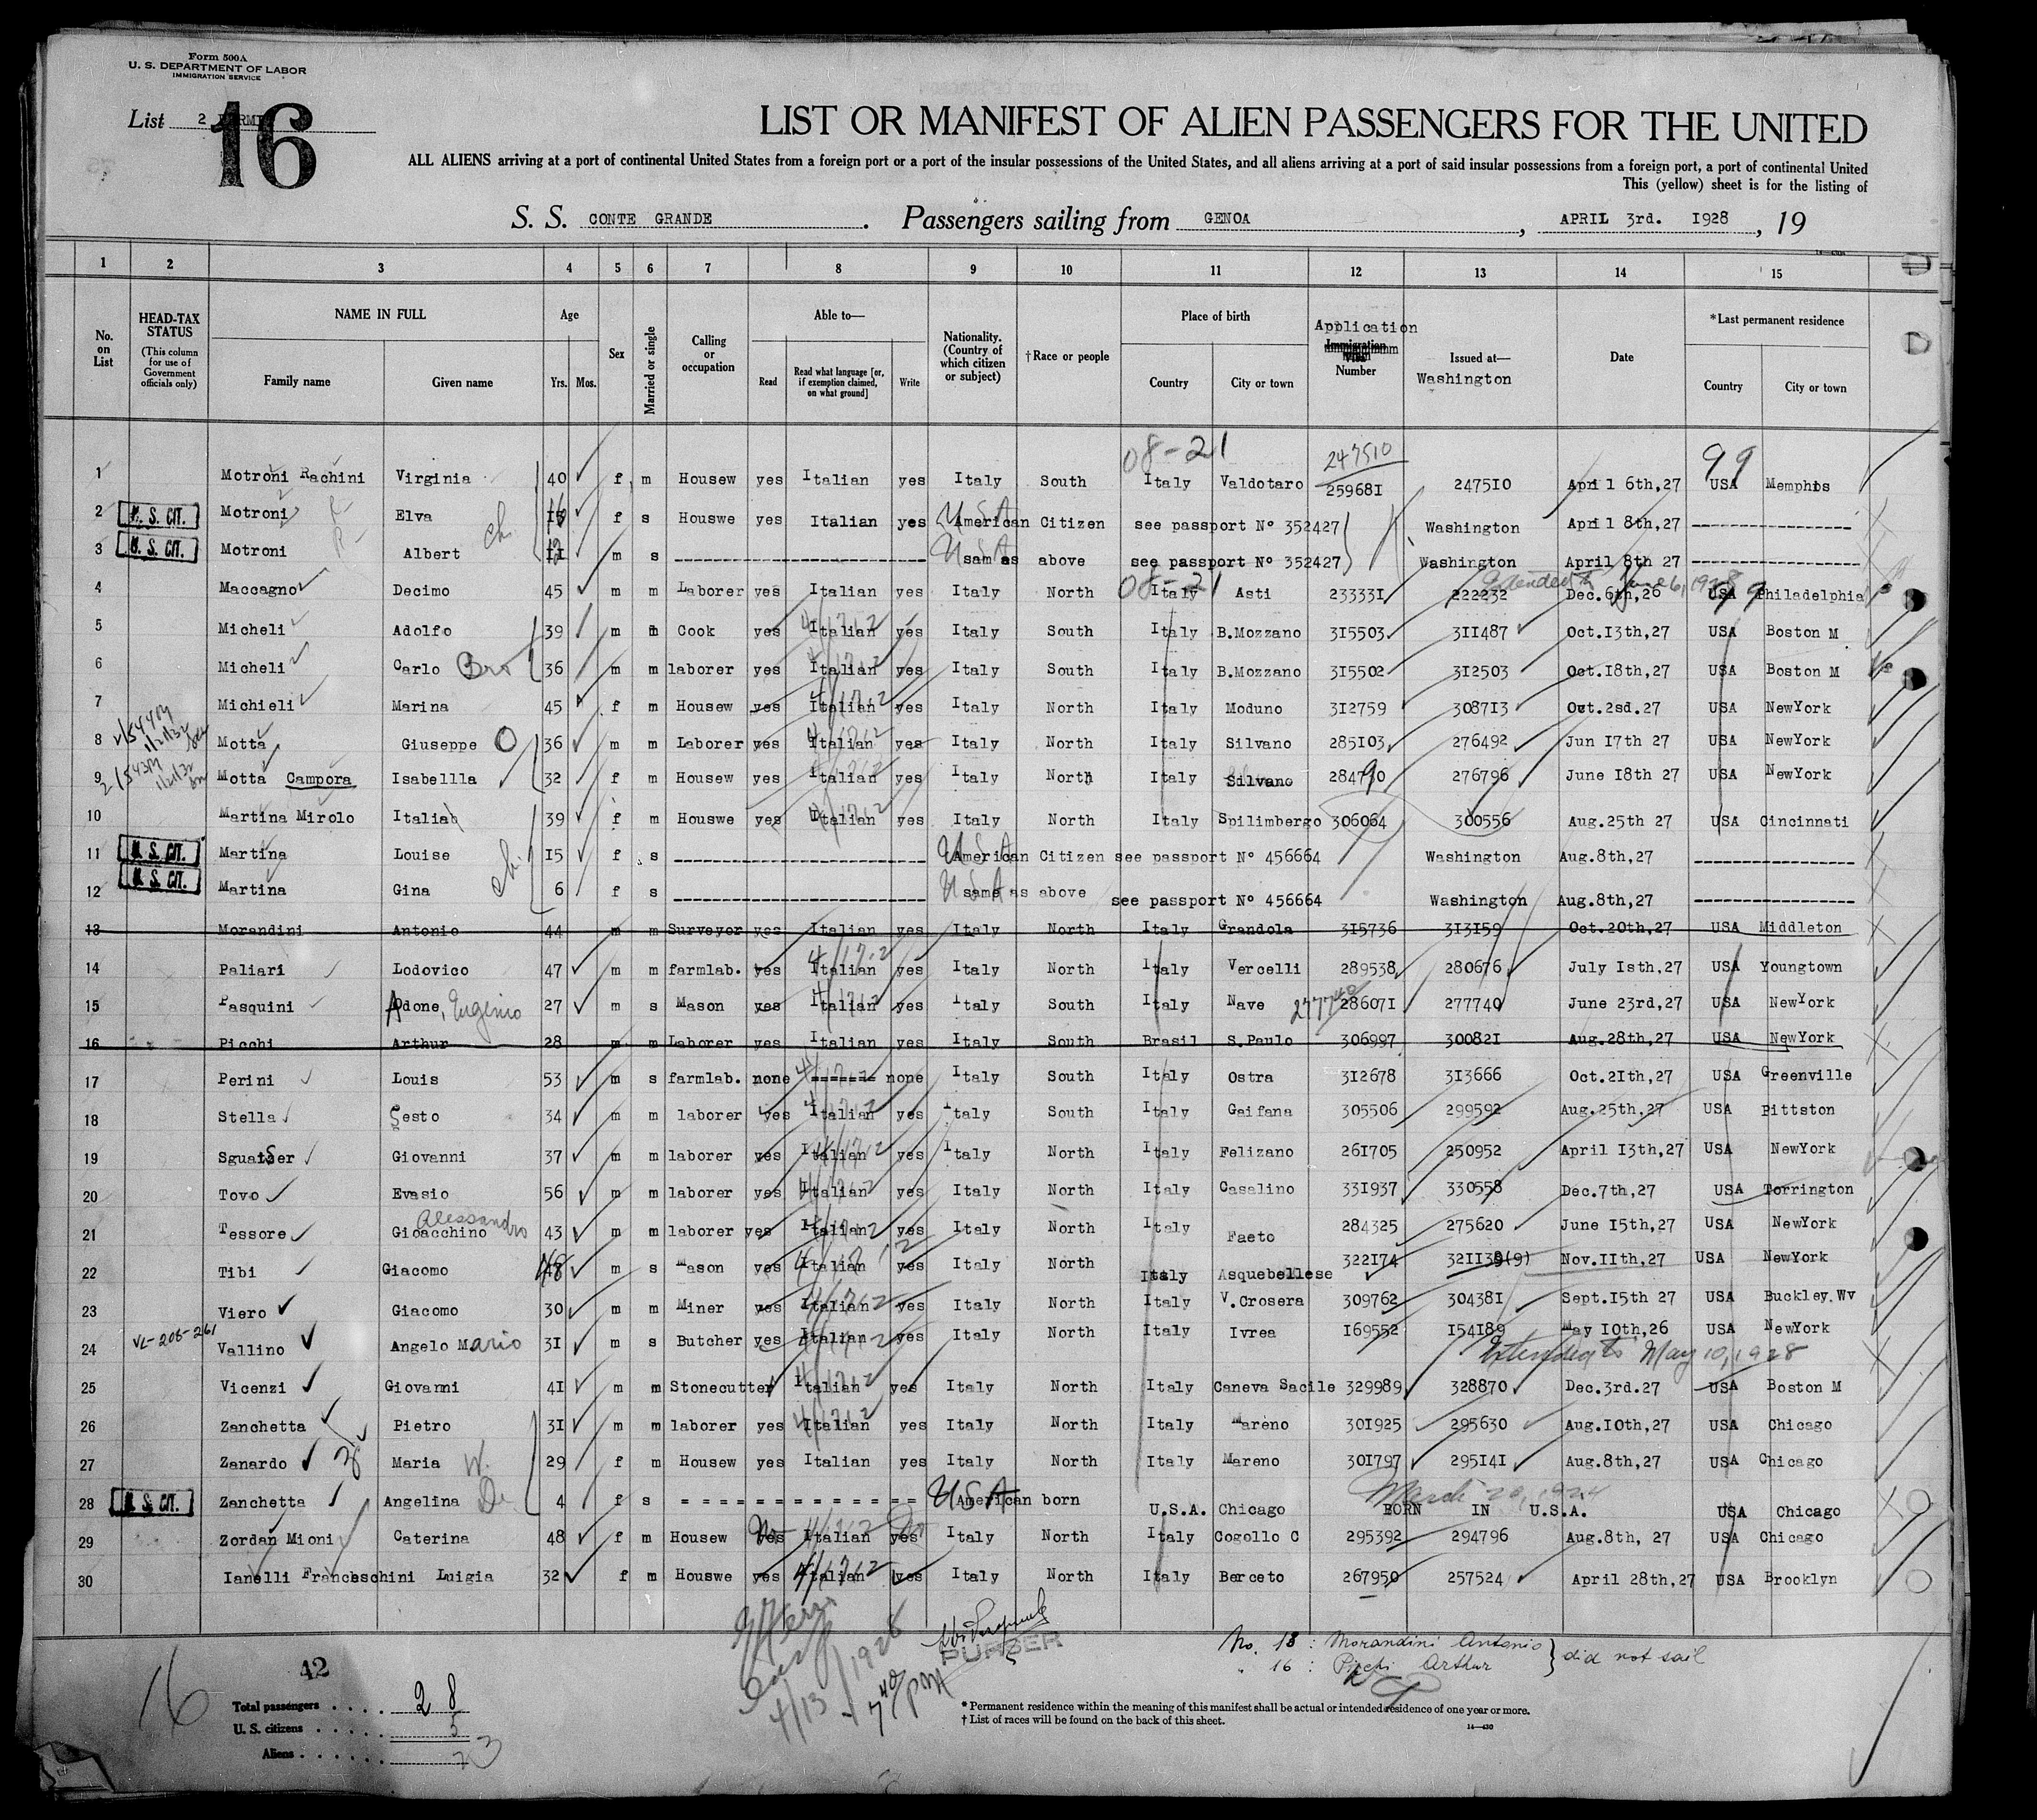 Form 500A
U. S. DEPARTMENT OF LABOR
IMMIGRATION SERVICE
List 2
16
LIST OR MANIFEST OF ALIEN PASSENGERS FOR THE UNITED
ALL ALIENS arriving at a port of continental United States from a foreign port or a port of the insular possessions of the United States, and all aliens arriving at a port of said insular possessions from a foreign port, a port of continental United
This (yellow) sheet is for the listing of
S. S. CONTE GRANDE. Passengers sailing from GENOA, APRIL 3rd. 1928, 19
1 2 3 4 5 6 7 8 9 10 11 12 13 14 15
No. on List
HEAD-TAX STATUS (This column for use of Government officials only)
NAME IN FULL Family name Given name
Age Yrs. Mos.
Sex
Married or single
Calling or occupation
Able to— Read Read what language [or, if exemption claimed, on what ground] Write
Nationality. (Country of which citizen or subject)
†Race or people
Place of birth Country City or town
Application Immigration Visa Number
Issued at— Washington
Date
*Last permanent residence Country City or town
08-21 247510 99
1 Motroni Rachini Virginia 40 f m Housew yes Italian yes Italy South Italy Valdotaro 259681 247510 April 6th,27 USA Memphis
2 U. S. CIT. Motroni Elva f s Houswe yes Italian yes USA American Citizen see passport N° 352427 Washington April 8th,27
3 U. S. CIT. Motroni Albert ch. m s USA sam as above see passport N° 352427 Washington April 8th 27
08-21 Extended to 99
4 Maccagno Decimo 45 m m Laborer yes Italian yes Italy North Italy Asti 233331 222232 Dec.6th,26 USA Philadelphia
5 Micheli Adolfo 39 m m Cook yes Italian yes Italy South Italy B.Mozzano 315503 311487 Oct.13th,27 USA Boston M
6 Micheli Carlo Bro 36 m m laborer yes Italian yes Italy South Italy B.Mozzano 315502 312503 Oct.18th,27 USA Boston M
7 Michieli Marina 45 f m Housew yes Italian yes Italy North Italy Moduno 312759 308713 Oct.2sd.27 USA NewYork
8 Motta Giuseppe 36 m m Laborer yes Italian yes Italy North Italy Silvano 285103 276492 Jun 17th 27 USA NewYork
9 Motta Campora Isabellla 32 f m Housew yes Italian yes Italy North Italy Silvano 284790 276796 June 18th 27 USA NewYork
10 Martina Mirolo Italia 39 f m Houswe yes Italian yes Italy North Italy Spilimbergo 306064 300556 Aug.25th 27 USA Cincinnati
11 U. S. CIT. Martina Louise 15 f s USA American Citizen see passport N° 456664 Washington Aug.8th,27
12 U. S. CIT. Martina Gina ch. 6 f s USA same as above see passport N° 456664 Washington Aug.8th,27
13 Morandini Antonio 44 m m Surveyor yes Italian yes Italy North Italy Grandola 315736 313159 Oct.20th,27 USA Middleton
14 Paliari Lodovico 47 m m farmlab. yes Italian yes Italy North Italy Vercelli 289538 280676 July Isth,27 USA Youngtown
15 Pasquini Adone, Eugenio 27 m s Mason yes Italian yes Italy South Italy Nave 277740 286071 277740 June 23rd,27 USA NewYork
16 Picchi Arthur 28 m m Laborer yes Italian yes Italy South Brasil S.Paulo 306997 300821 Aug.28th,27 USA NewYork
17 Perini Louis 53 m s farmlab. none none Italy South Italy Ostra 312678 313666 Oct.21th,27 USA Greenville
18 Stella Sesto 34 m m laborer yes Italian yes Italy South Italy Gaifana 305506 299592 Aug.25th,27 USA Pittston
19 Sguaitser Giovanni 37 m m laborer yes Italian yes Italy North Italy Felizano 261705 250952 April 13th,27 USA NewYork
20 Tovo Evasio 56 m m laborer yes Italian yes Italy North Italy Casalino 331937 330558 Dec.7th,27 USA Torrington
21 Tessore Gioacchino Alessandro 43 m m laborer yes Italian yes Italy North Italy Faeto 284325 275620 June 15th,27 USA NewYork
22 Tibi Giacomo 48 m s Mason yes Italian yes Italy North Italy Asquebellese 322174 321139(9) Nov.11th,27 USA NewYork
23 Viero Giacomo 30 m m Miner yes Italian yes Italy North Italy V.Crosera 309762 304381 Sept.15th 27 USA Buckley.Wv
VL-208-261
24 Vallino Angelo Mario 31 m s Butcher yes Italian yes Italy North Italy Ivrea 169552 154189 May 10th,26 USA NewYork
Extended to May 10, 1928
25 Vicenzi Giovanni 41 m m Stonecutter Italian yes Italy North Italy Caneva Sacile 329989 328870 Dec.3rd.27 USA Boston M
26 Zanchetta Pietro 31 m m laborer yes Italian yes Italy North Italy Mareno 301925 295630 Aug.10th,27 USA Chicago
27 Zanardo Maria W. 29 f m Housew yes Italian yes Italy North Italy Mareno 301797 295141 Aug.8th,27 USA Chicago
March 20, 1924
28 U. S. CIT. Zanchetta Angelina Da 4 f s USA American born U.S.A. Chicago BORN IN U.S.A. USA Chicago
29 Zordan Mioni Caterina 48 f m Housew yes No Italian yes No Italy North Italy Cogollo C 295392 294796 Aug.8th, 27 USA Chicago
30 Ianelli Franceschini Luigia 32 f m Houswe yes Italian yes Italy North Italy Berceto 267950 257524 April 28th,27 USA Brooklyn
PURSER
No. 13 : Morandini Antonio
" 16 : Picchi Arthur } did not sail
4/13/1928 7 40 PM
16
42
Total passengers . . . . 28
U. S. citizens . . . . . 5
Aliens . . . . . . 23
* Permanent residence within the meaning of this manifest shall be actual or intended residence of one year or more.
† List of races will be found on the back of this sheet.
14—430